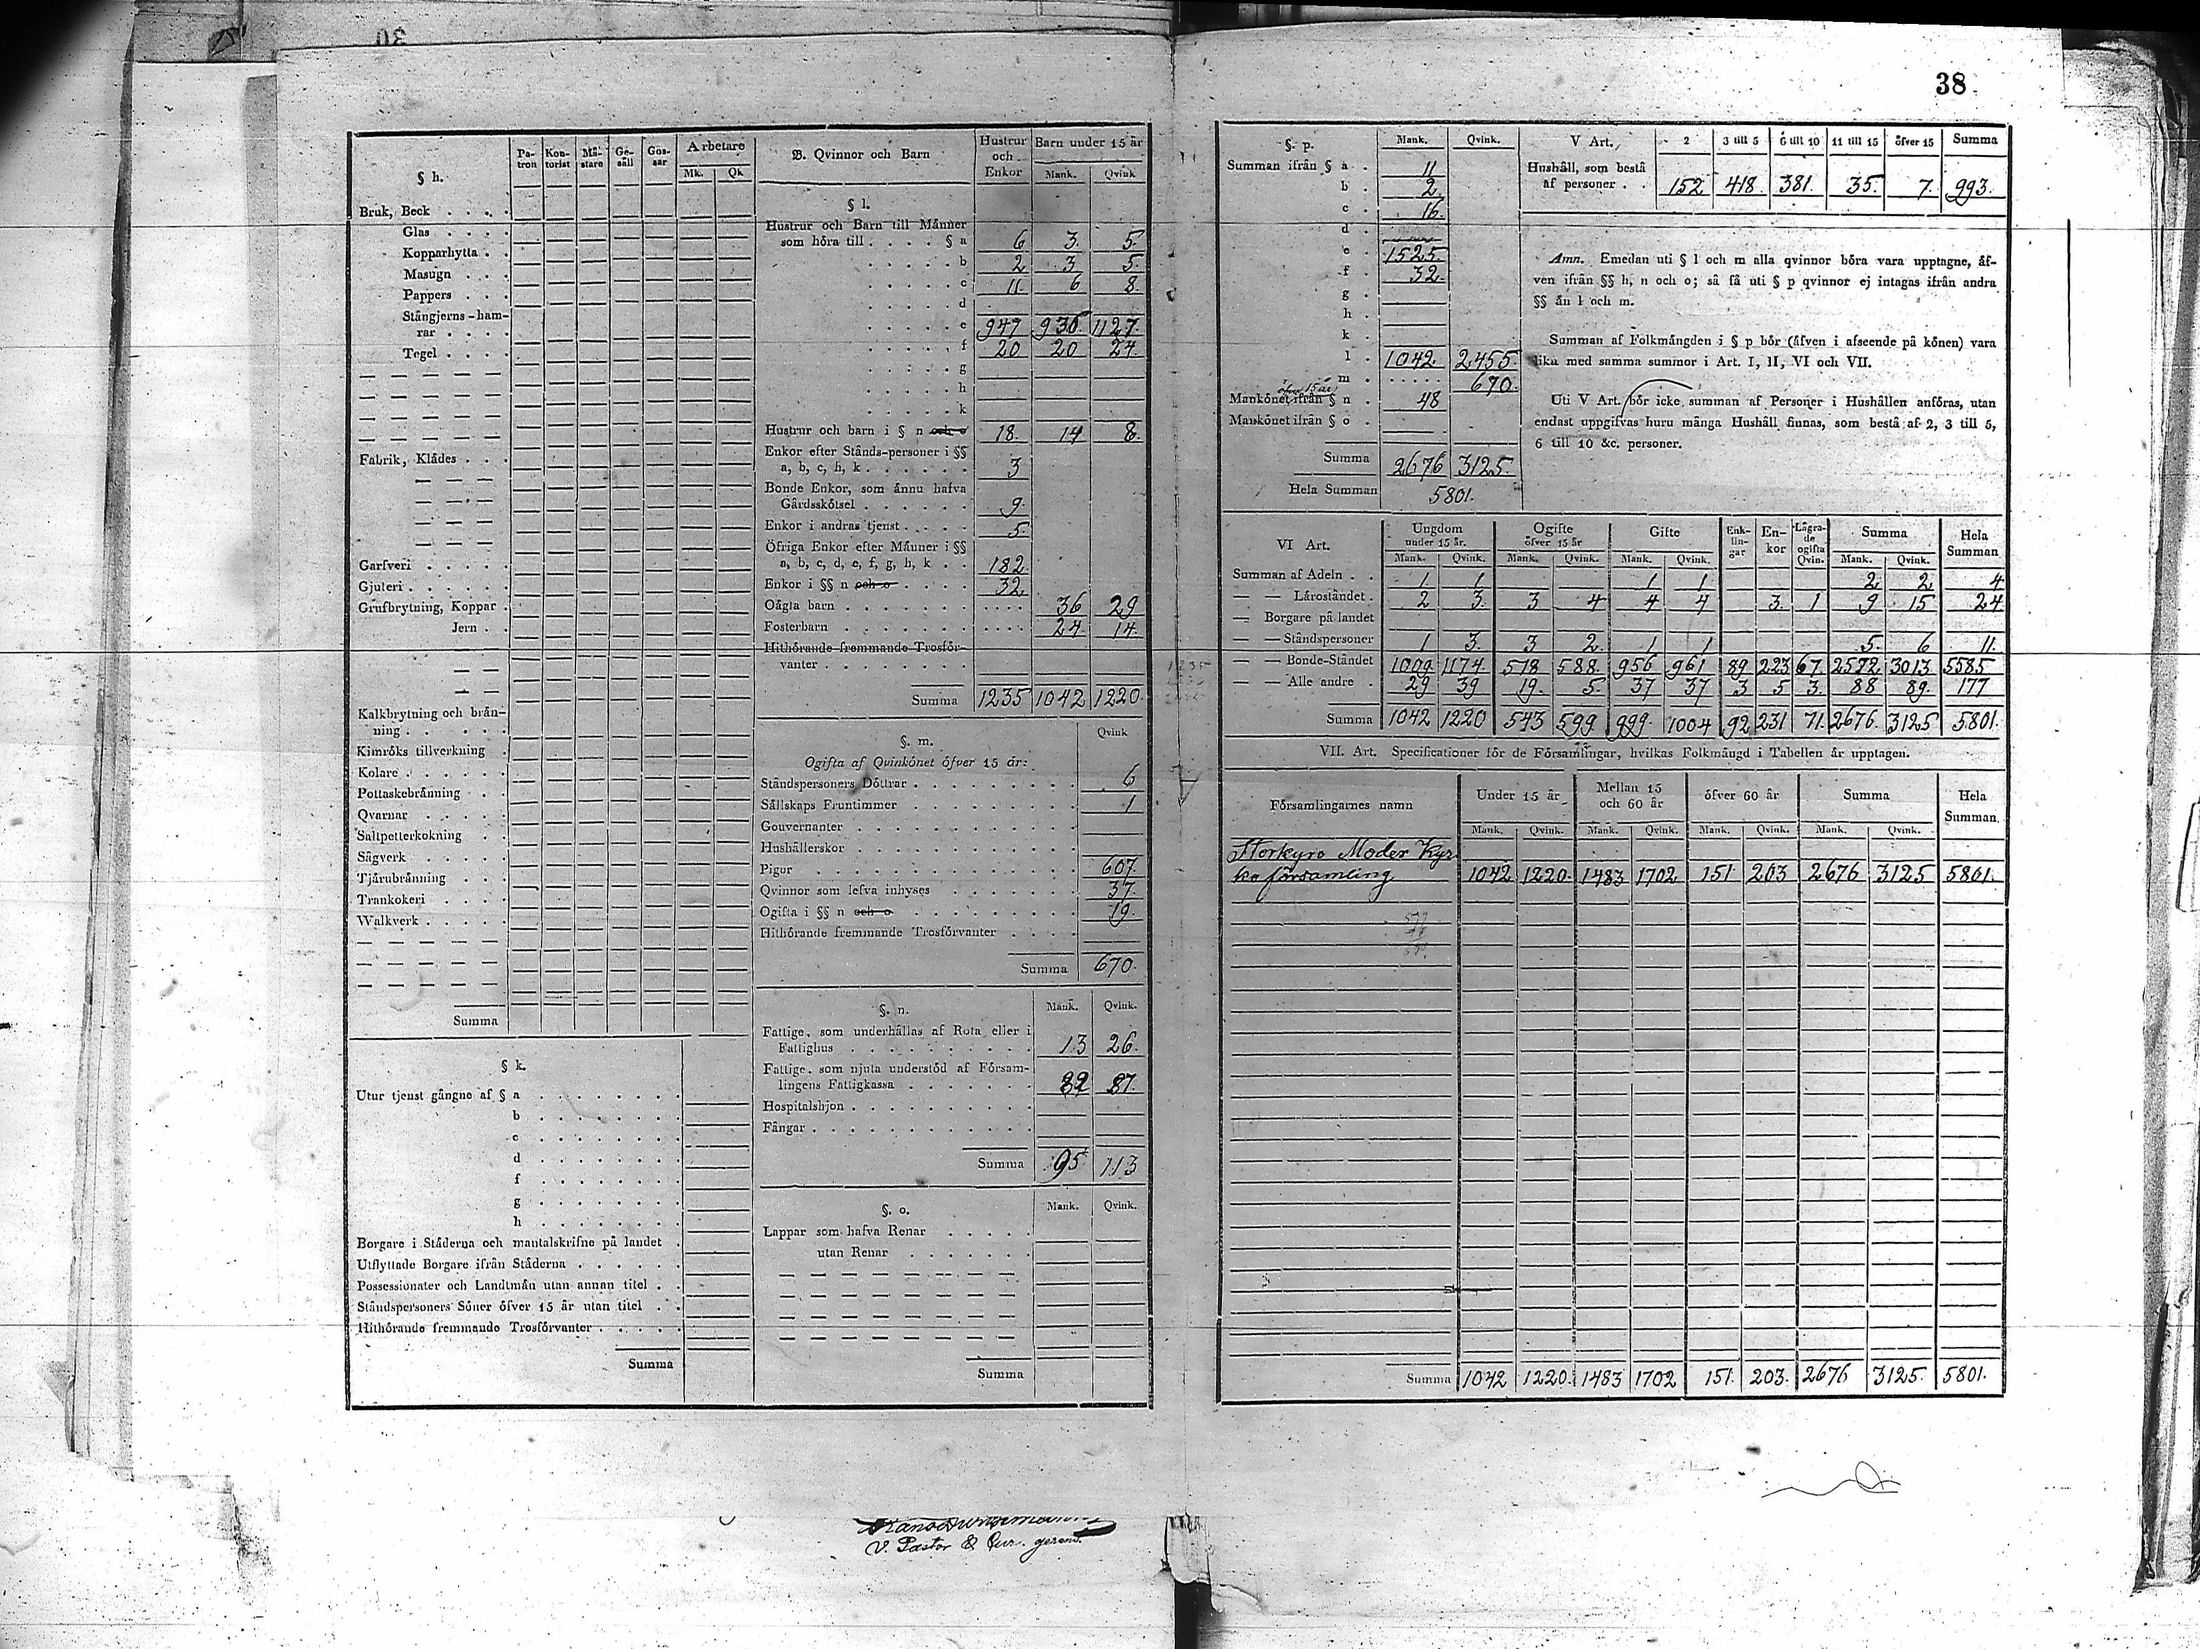 38
§ h.
Pa-tron Kon-torist Mä-stare Ge-säll Gos-sar Arbetare
Mk. Qk
Bruk, Beck
Glas
Kopparhytta
Masugn
Pappers
Stångjerns-ham-
rar
Tegel
Fabrik, Klådes
Garfveri
Gjuteri
Grufbrytning, Koppar
Jern
Kalkbrytning och brän-
ning
Kimröks tillverkning
Kolare
Pottaskebränning
Qvarnar
Saltpetterkokning
Sågverk
Tjärubränning
Trankokeri
Walkverk
Summa
§ k.
Utur tjenst gångne af § a
b
c
d
f
g
h
Borgare i Städerna och mantalskrifne på landet
Utflyttade Borgare ifrån Städerna
Possessionater och Landtmän utan annan titel
Ståndspersoners Söner öfver 15 år utan titel
Hithörande fremmande Trosförvanter
Summa
B. Qvinnor och Barn Hustrur och Enkor Barn under 15 år
Mank. Qvink
§ l.
Hustrur och Barn till Männer
som höra till § a 6 3 5
b 2 3 5
c 11 6 8
d
e 947 936 1127
f 20 20 24
g
h
k
Hustrur och barn i § n och o 18 14 8
Enkor efter Stånds-personer i §§
a, b, c, h, k 3
Bonde Enkor, som ännu hafva
Gårdsskötsel 9
Enkor i andras tjenst 5
Öfriga Enkor efter Männer i §§
a, b, c, d, e, f, g, h, k 182
Enkor i §§ n och o 32
Oägta barn 36 29
Fosterbarn 24 14
Hithörande fremmande Trosför-
vanter
Summa 1235 1042 1220
§. m. Qvink
Ogifta af Qvinkönet öfver 15 år:
Ståndspersoners Döttrar 6
Sällskaps Fruntimmer 1
Gouvernanter
Hushållerskor
Pigor 607
Qvinnor som lefva inhyses 37
Ogifta i §§ n och o 19
Hithörande fremmande Trosförvanter
Summa 670
§. n. Mank. Qvink.
Fattige, som underhållas af Rota eller i
Fattighus 13 26
Fattige, som njuta understöd af Försam-
lingens Fattigkassa 82 87
Hospitalshjon
Fångar
Summa 95 113
§. o. Mank. Qvink.
Lappar som hafva Renar
utan Renar
Summa
V. Pastor & Cur. gerens.
§. p. Mank. Qvink.
Summan ifrån § a 11
b 2
c 16
d
e 1525
f 32
g
h
k
l 1042 2455
m 670
öfver 15 år
Mankönet ifrån § n 48
Mankönet ifrån § o
Summa 2676 3125
Hela Summan 5801
V Art. 2 3 till 5 6 till 10 11 till 15 öfver 15 Summa
Hushåll, som bestå
af personer 152 418 381 35 7 993
Amn. Emedan uti § l och m alla qvinnor böra vara upptagne, äf-
ven ifrån §§ h, n och o; så få uti § p qvinnor ej intagas ifrån andra
§§ än l och m.
Summan af Folkmängden i § p bör (äfven i afseende på könen) vara
lika med samma summor i Art. I, II, VI och VII.
Uti V Art. bör icke summan af Personer i Hushållen anföras, utan
endast uppgifvas huru många Hushåll finnas, som bestå af 2, 3 till 5,
6 till 10 &c. personer.
VI Art. Ungdom under 15 år. Ogifte öfver 15 år Gifte Enk-lin-gar En-kor Lägra-de ogifta Qvin. Summa Hela Summan
Mank. Qvink. Mank. Qvink. Mank. Qvink. Mank. Qvink.
Summan af Adeln 1 1 1 1 2 2 4
— — Läroståndet 2 3 3 4 4 4 3 1 9 15 24
— Borgare på landet
— — Ståndspersoner 1 3 3 2 1 1 5 6 11
— — Bonde-Ståndet 1009 1174 518 588 956 961 89 223 67 2572 3013 5585
— — Alle andre 29 39 19 5 37 37 3 5 3 88 89 177
Summa 1042 1220 543 599 999 1004 92 231 71 2676 3125 5801
VII. Art. Specificationer för de Församlingar, hvilkas Folkmängd i Tabellen är upptagen.
Församlingarnes namn Under 15 år Mellan 15 och 60 år öfver 60 år Summa Hela Summan.
Mank. Qvink. Mank. Qvink. Mank. Qvink. Mank. Qvink.
Storkyro Moder Kyr
ko församling 1042 1220 1483 1702 151 203 2676 3125 5801
Summa 1042 1220 1483 1702 151 203 2676 3125 5801